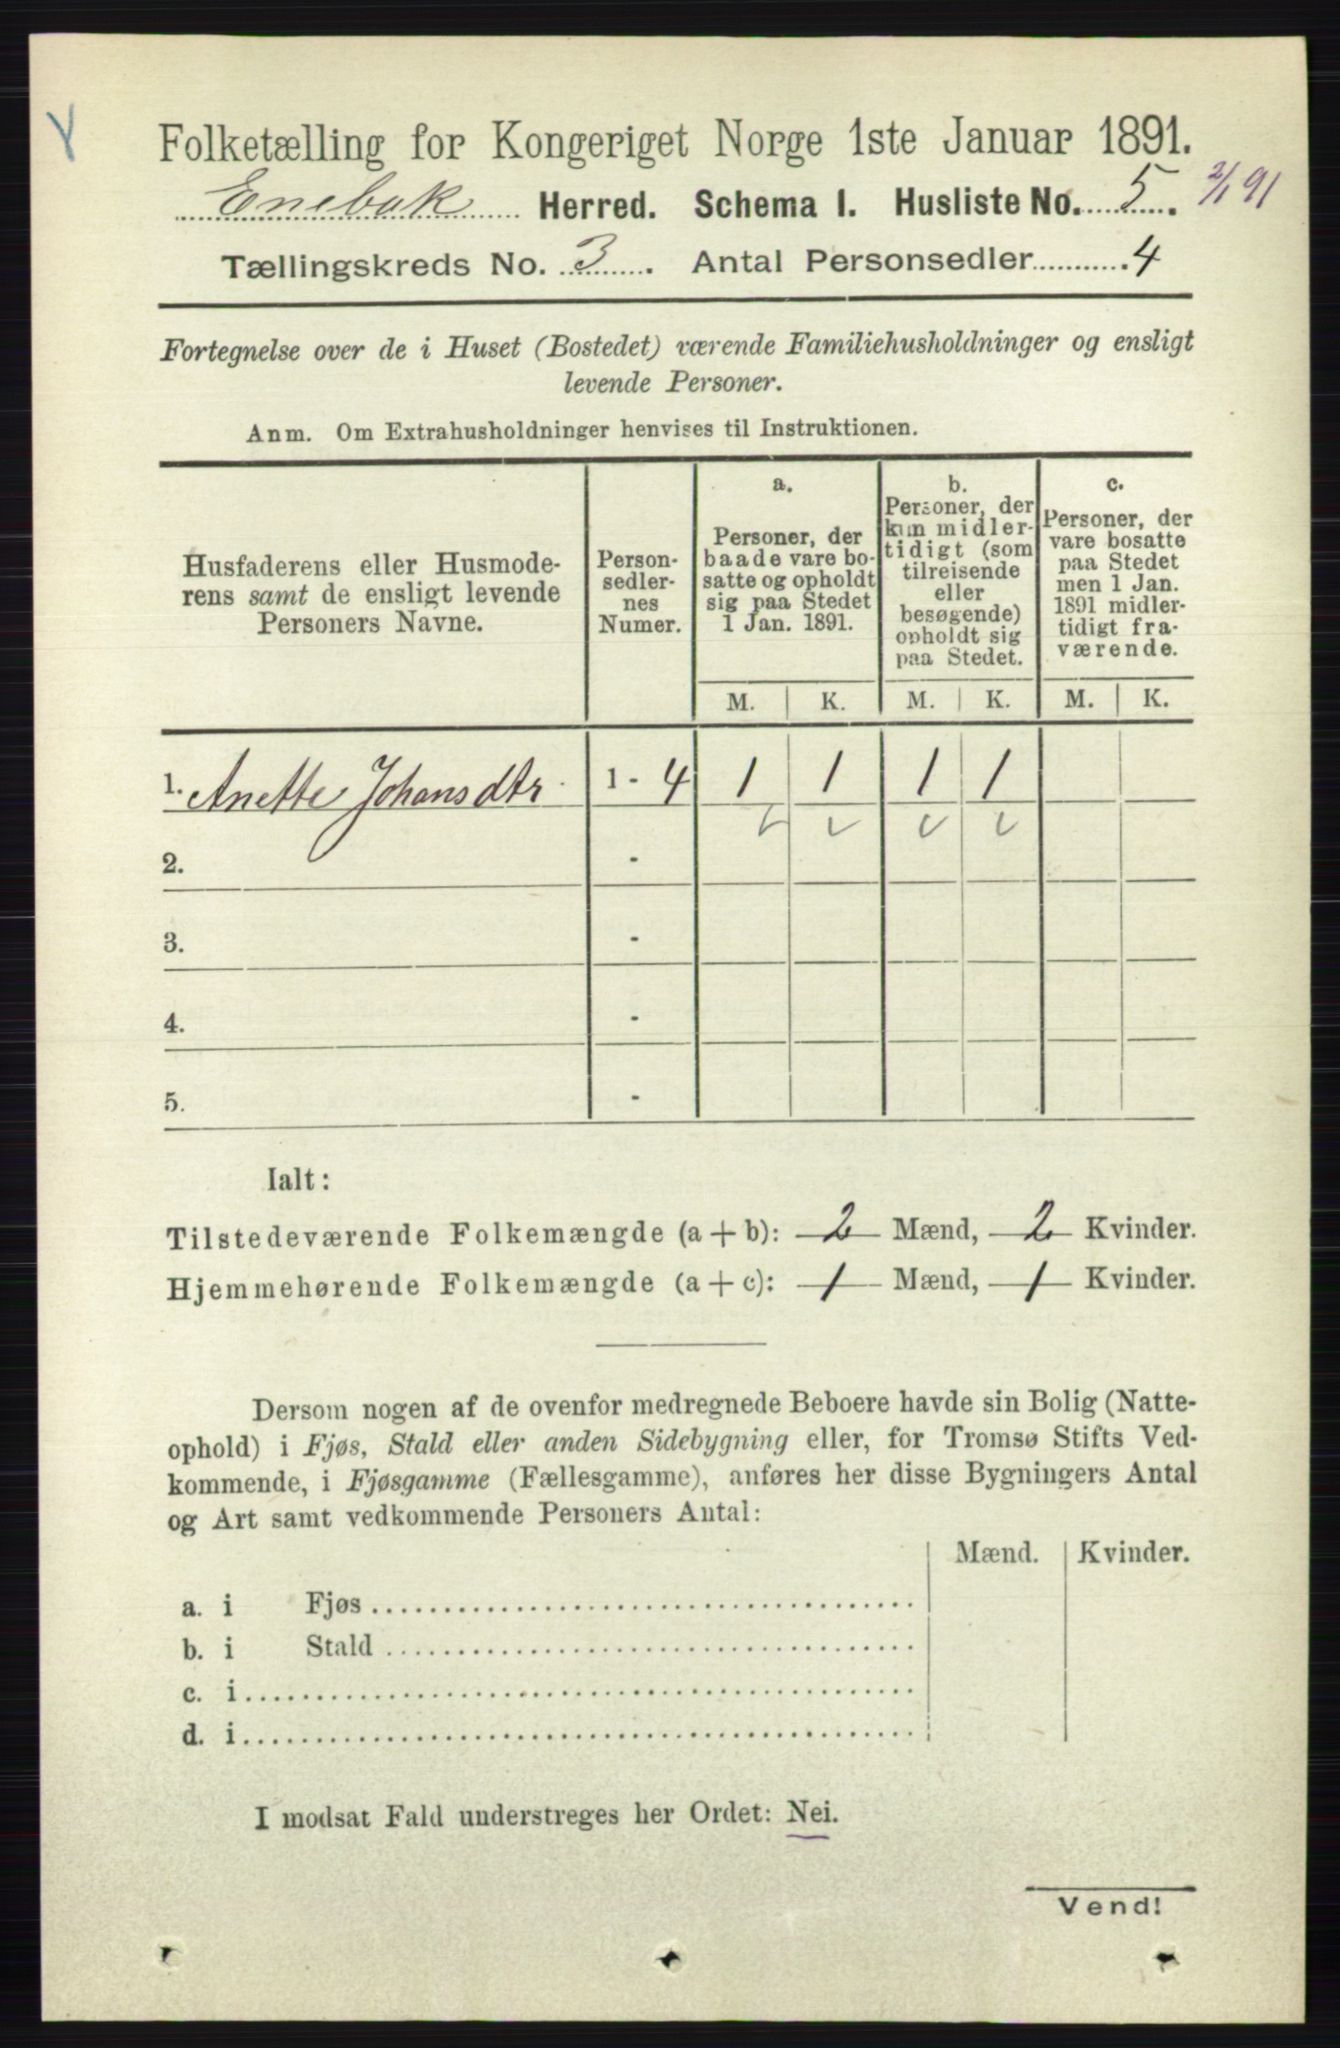 Folketælling for Kongeriget Norge 1ste Januar 1891.
Enebak Herred. Schema I. Husliste No. 5. 2/1 91
Tællingskreds No. 3. Antal Personsedler 4
Fortegnelse over de i Huset (Bostedet) værende Familiehusholdninger og ensligt
levende Personer.
Anm. Om Extrahusholdninger henvises til Instruktionen.
Husfaderens eller Husmode-
rens samt de ensligt levende
Personers Navne.
Person-
sedler-
nes
Numer.
a.
Personer, der
baade vare bo-
satte og opholdt
sig paa Stedet
1 Jan. 1891.
b.
Personer, der
kun midler-
tidigt (som
tilreisende
eller
besøgende)
opholdt sig
paa Stedet.
c.
Personer, der
vare bosatte
paa Stedet
men 1 Jan.
1891 midler-
tidigt fra-
værende.
M. K. M. K. M. K.
1. Anette Johansdtr 1 - 4 1 1 1 1
2. -
3. -
4. -
5. -
Ialt:
Tilstedeværende Folkemængde (a + b): 2 Mænd, 2 Kvinder.
Hjemmehørende Folkemængde (a + c): 1 Mænd, 1 Kvinder.
Dersom nogen af de ovenfor medregnede Beboere havde sin Bolig (Natte-
ophold) i Fjøs, Stald eller anden Sidebygning eller, for Tromsø Stifts Ved-
kommende, i Fjøsgamme (Fællesgamme), anføres her disse Bygningers Antal
og Art samt vedkommende Personers Antal:
Mænd. Kvinder.
a. i Fjøs
b. i Stald
c. i
d. i
I modsat Fald understreges her Ordet: Nei.
Vend!